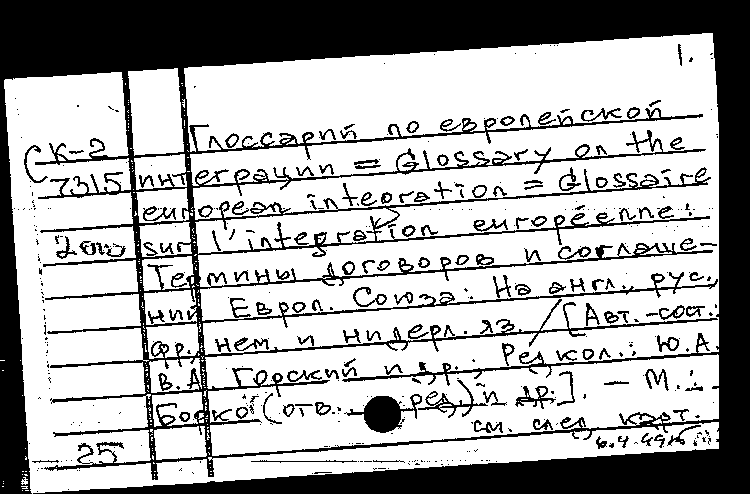 1.
Глоссарий по европейской
СК-2
7315 интеграции = Glossary on the
european integration = Glossaire
sur l'integration européenne:
Термины договоров и соглаше-
ний Европ. Союза: На англ., рус.,
фр., нем. и нидерл. яз. / [Авт.-сост.:
В.А. Горский и др.; Редкол.: Ю.А.
Борко (отв. ред.) и др.]. - М.:
см. след. карт.
25